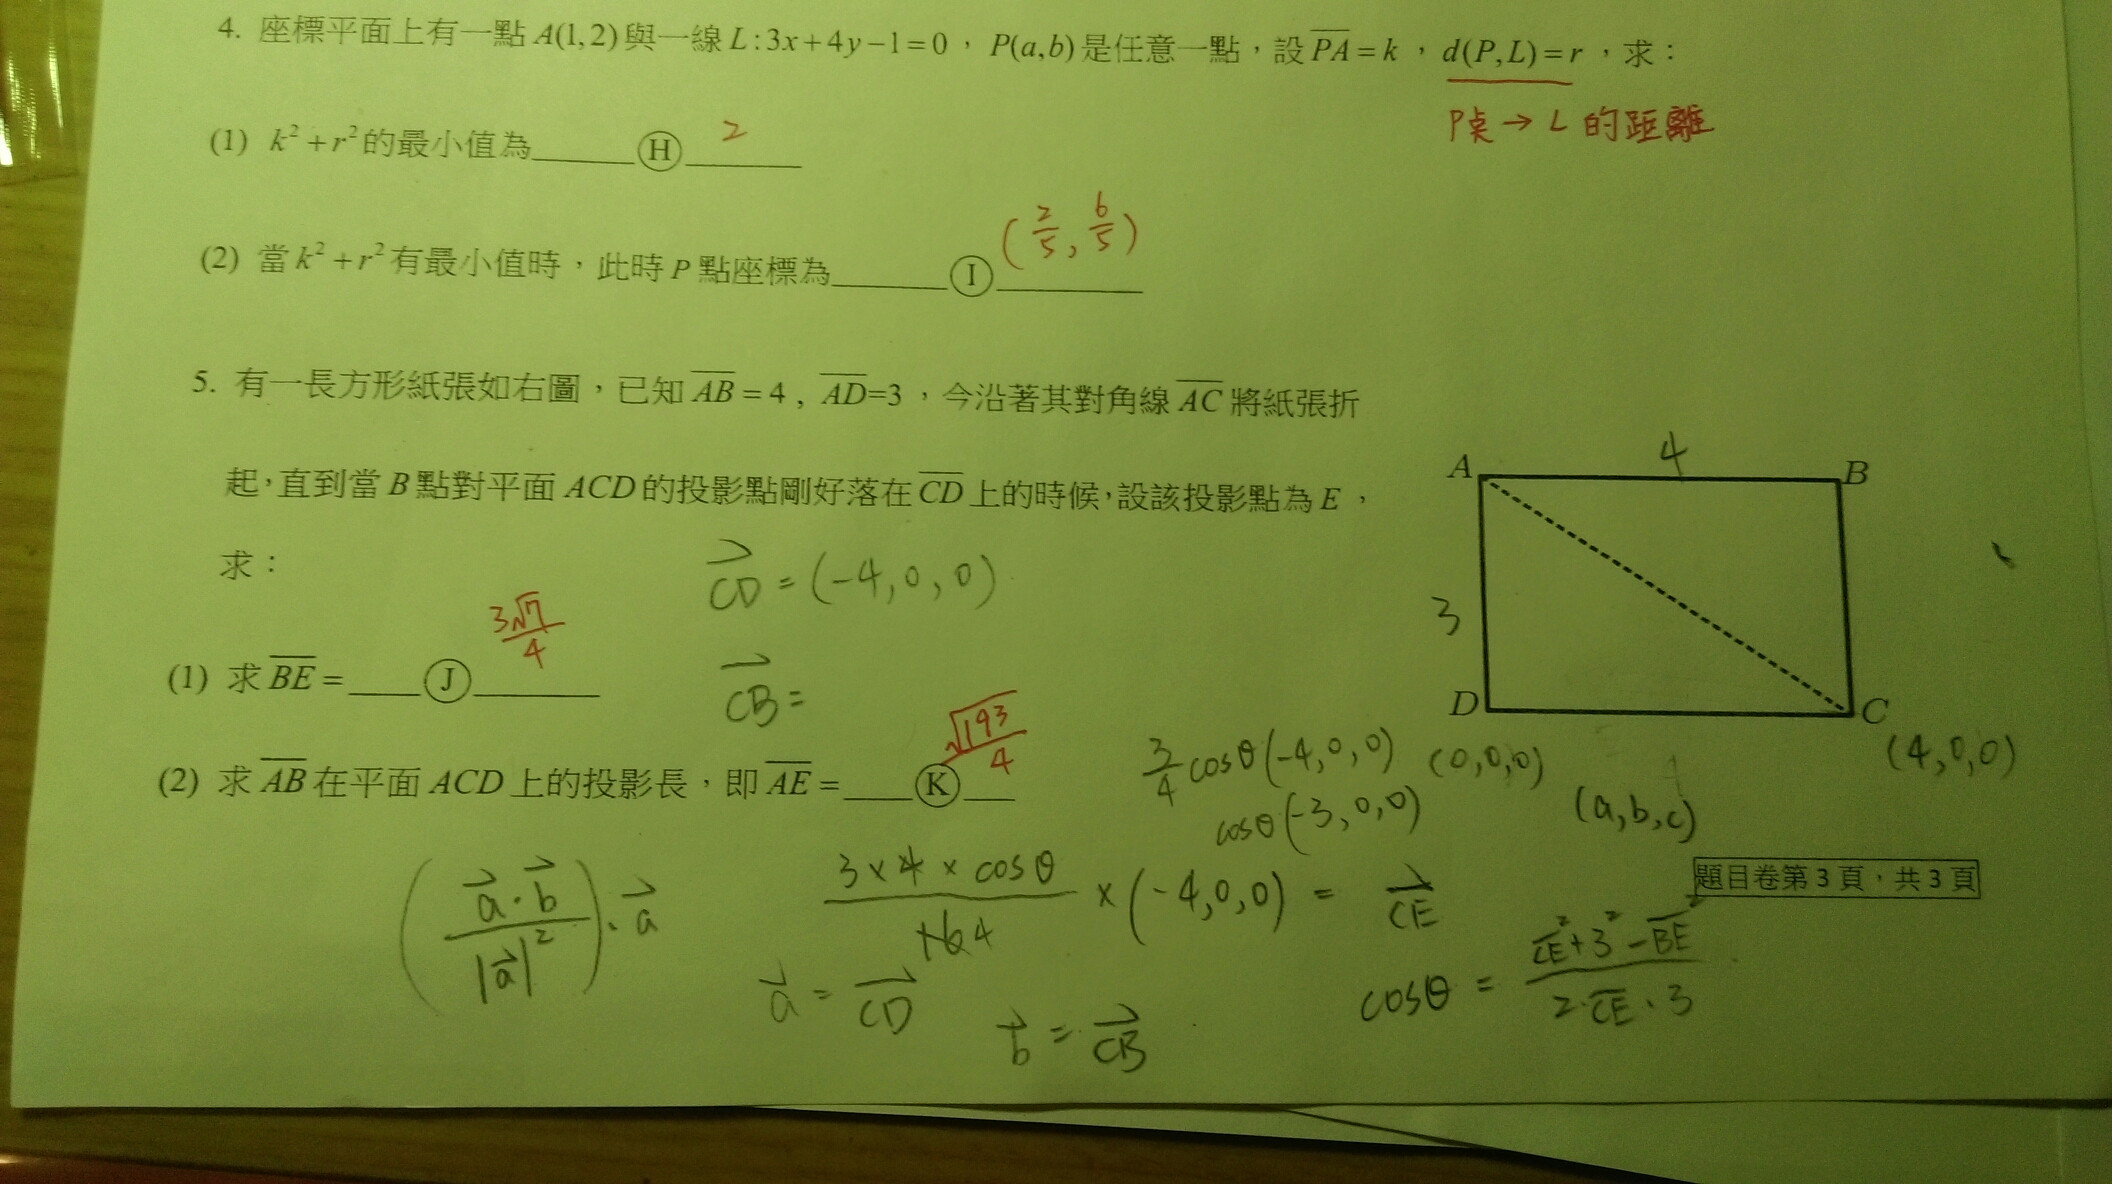 4. 座標平面上有一點 A(1,2) 與一線 L:3x+4y−1=0，P(a,b) 是任意一點，設 \overline{PA}=k，d(P,L)=r，求：
P點→L的距離
(1) k²+r²的最小值為______Ⓗ______ 2
(2) 當 k²+r² 有最小值時，此時 P 點座標為______Ⓘ______ (2/5, 6/5)
5. 有一長方形紙張如右圖，已知 \overline{AB}=4，\overline{AD}=3，今沿著其對角線 \overline{AC} 將紙張折
起，直到當 B 點對平面 ACD 的投影點剛好落在 \overline{CD} 上的時候，設該投影點為 E，
求：
\vec{CD}=(-4,0,0)
(1) 求 \overline{BE}=____Ⓙ______ 3√7/4
\vec{CB}=
(2) 求 \overline{AB} 在平面 ACD 上的投影長，即 \overline{AE}=____Ⓚ__ √193/4
A 4 B
3
D C
(0,0,0) (4,0,0)
3/4 cosθ(-4,0,0)
cosθ(-3,0,0)
(a,b,c)
(\vec{a}·\vec{b}/|\vec{a}|²)·\vec{a}
3×4×cosθ/16 4 ×(-4,0,0) = \vec{CE}
\vec{a}=\vec{CD}
\vec{b}=\vec{CB}
cosθ = \overline{CE}²+3²-\overline{BE}²/2·\overline{CE}·3
題目卷第 3 頁，共 3 頁